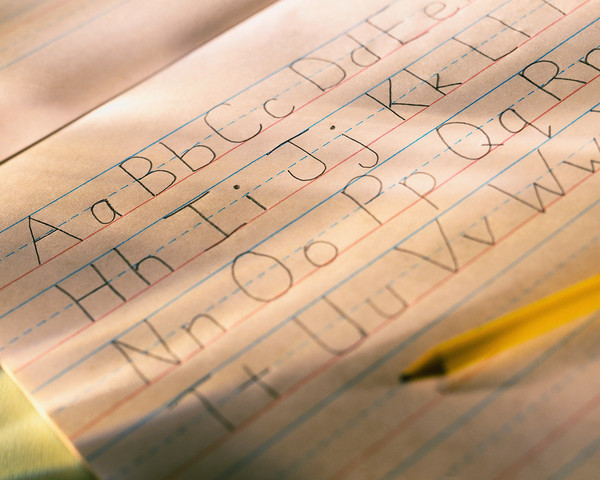 Aa Bb Cc Dd Ee
Hh Ii Jj Kk Ll
Nn Oo Pp Qq Rr
Tt Uu Vv Ww